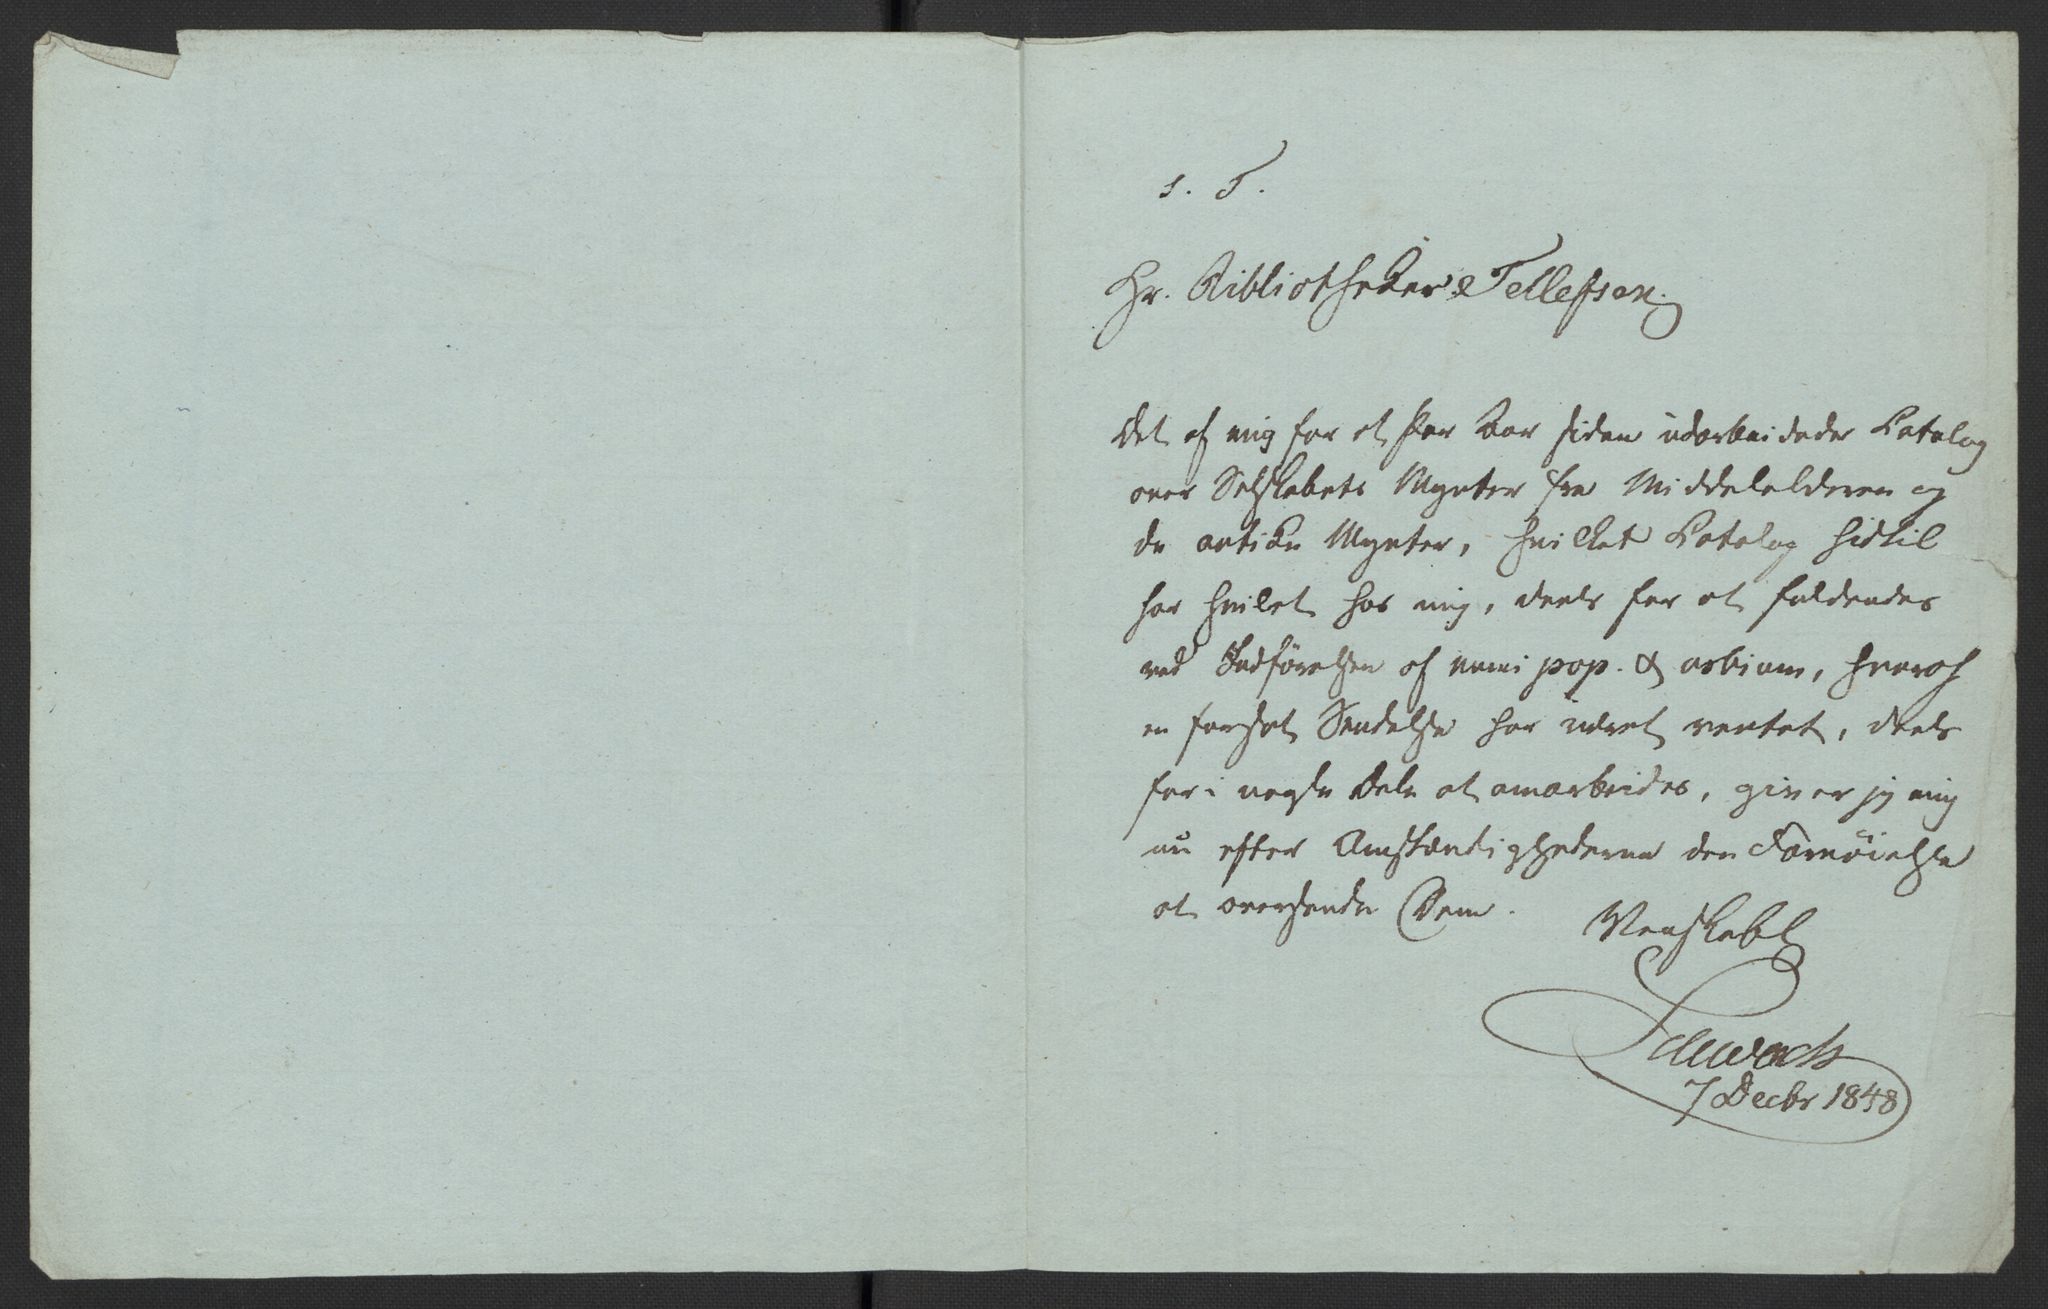 S. T.
Hr. Bibliothekar Tellefsen.
Det af mig for et Par Aar siden udarbeidede Catalog
over Selskabets Mynter fra Middelalderen og
de antike Mynter, hvilket Catalog hidtil
har hvilet hos mig, deels for at fuldendes
ved Indførelsen af numi pop. & urbium, hvoraf
en forsat Sendelse har været ventet, deels
for i nogle Dele at omarbeides, giver jeg mig
nu efter Omstændighederne den Fornøielse
at oversende Dem.
Venskabl
Schwach
7 Decbr 1848